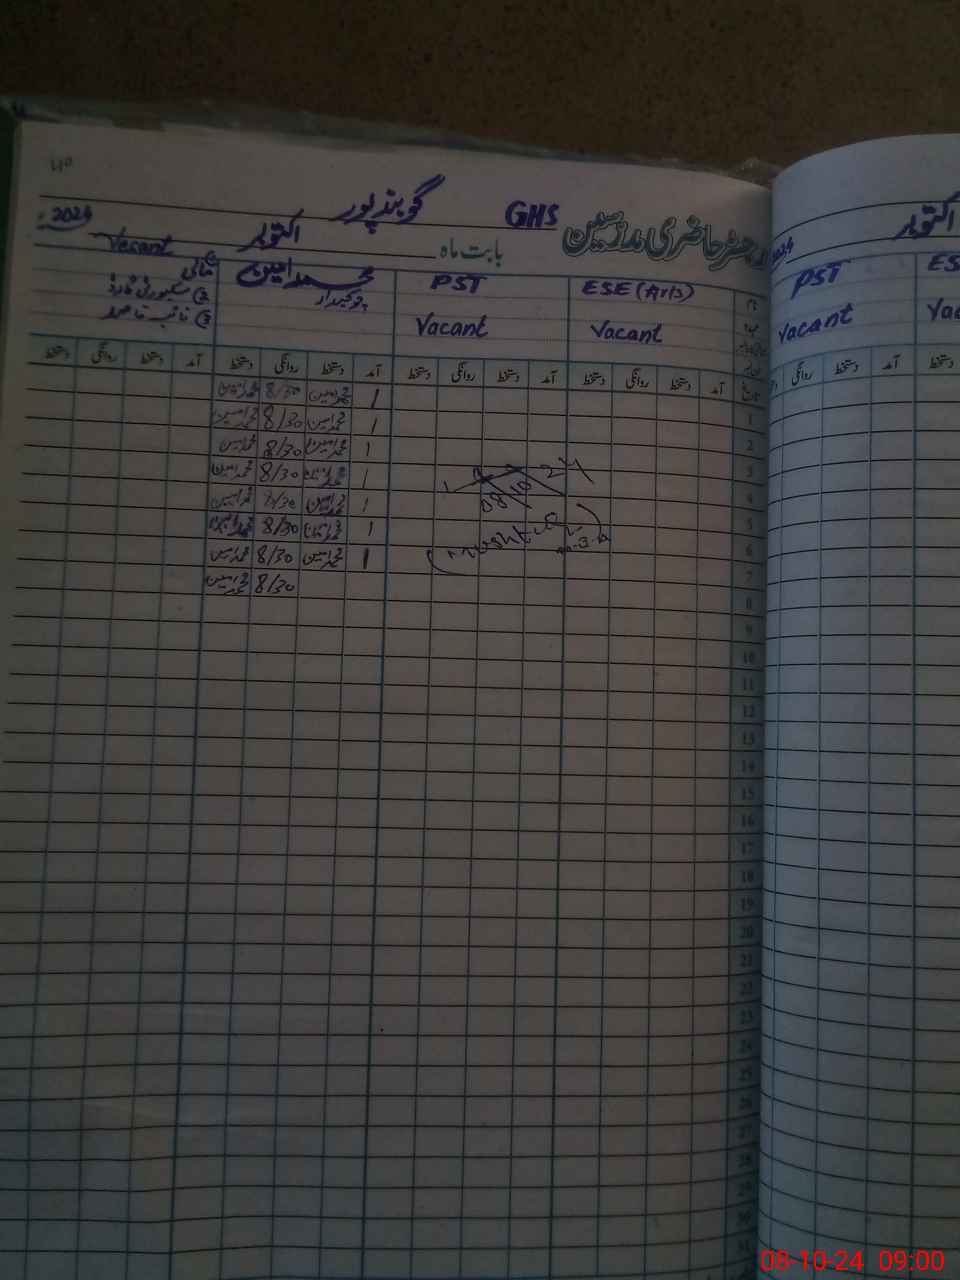 گوبند پور GHS رجسٹر حاضری مدرسین
2024 اکتوبر بابت ماہ
اکتوبر
2024
ESE (Arts)
Vacant
PST
Vacant
محمد امین
چوکیدار
Vacant
مالی
سیکورٹی گارڈ
نائب قاصد
PST
Vacant
ES
Vac
تاریخ آمد دستخط روانگی دستخط آمد دستخط روانگی دستخط آمد دستخط روانگی دستخط آمد دستخط روانگی دستخط
1 1 محمد امین 8/30 محمد امین
2 1 محمد امین 8/30 محمد امین
3 1 محمد امین 8/30 محمد امین
4 1 محمد امین 8/30 محمد امین
5 1 محمد امین 8/30 محمد امین
6 1 محمد امین 8/30 محمد امین
7 1 محمد امین 8/30 محمد امین
8 8/30 محمد امین
9
10
11
12
13
14
15
16
17
18
19
20
21
22
23
24
25
26
27
28
29
30
31
08-10-24
08-10-24 09:00